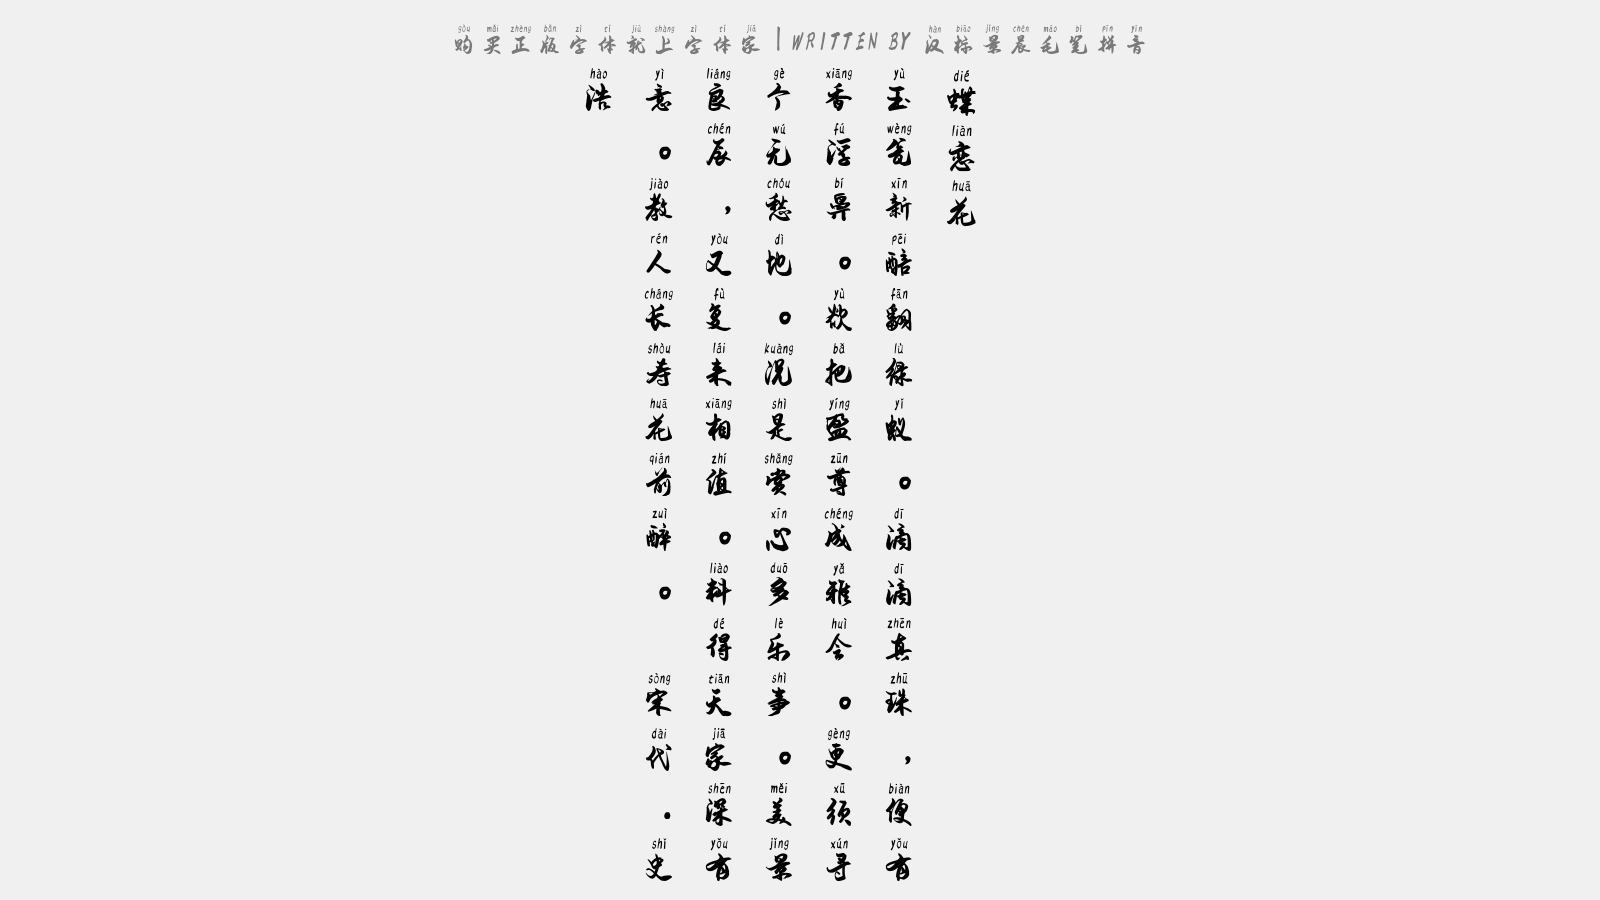 购买正版字体就上字体家 | WRITTEN BY 汉标景晨毛笔拼音
蝶恋花
玉瓮新醅翻绿蚁。滴滴真珠，便有
香浮鼻。欲把盈尊成雅会。更须寻
个无愁地。况是赏心多乐事。美景
良辰，又复来相值。料得天家深有
意。教人长寿花前醉。 宋代·史
浩